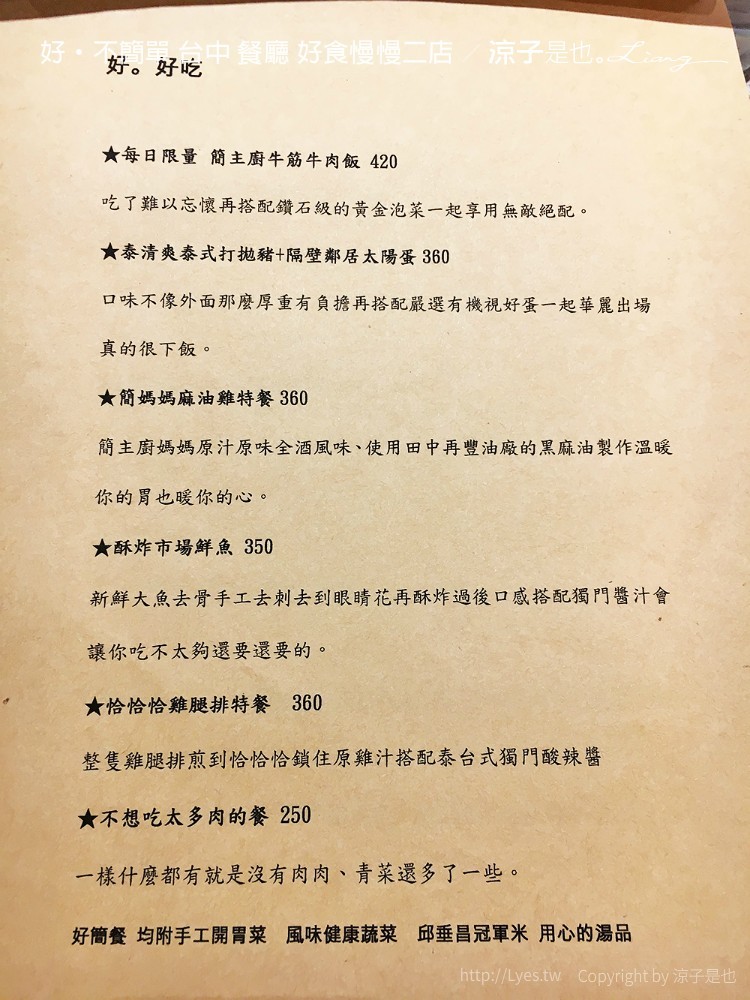 好・不簡單 台中 餐廳 好食慢慢二店 ／ 涼子是也。Liang
好。好吃
★每日限量 簡主廚牛筋牛肉飯 420
吃了難以忘懷再搭配鑽石級的黃金泡菜一起享用無敵絕配。
★泰清爽泰式打拋豬+隔壁鄰居太陽蛋 360
口味不像外面那麼厚重有負擔再搭配嚴選有機視好蛋一起華麗出場
真的很下飯。
★簡媽媽麻油雞特餐 360
簡主廚媽媽原汁原味全酒風味、使用田中再豐油廠的黑麻油製作溫暖
你的胃也暖你的心。
★酥炸市場鮮魚 350
新鮮大魚去骨手工去刺去到眼睛花再酥炸過後口感搭配獨門醬汁會
讓你吃不太夠還要還要的。
★恰恰恰雞腿排特餐 360
整隻雞腿排煎到恰恰恰鎖住原雞汁搭配泰台式獨門酸辣醬
★不想吃太多肉的餐 250
一樣什麼都有就是沒有肉肉、青菜還多了一些。
好簡餐 均附手工開胃菜 風味健康蔬菜 邱垂昌冠軍米 用心的湯品
http://Lyes.tw Copyright by 涼子是也